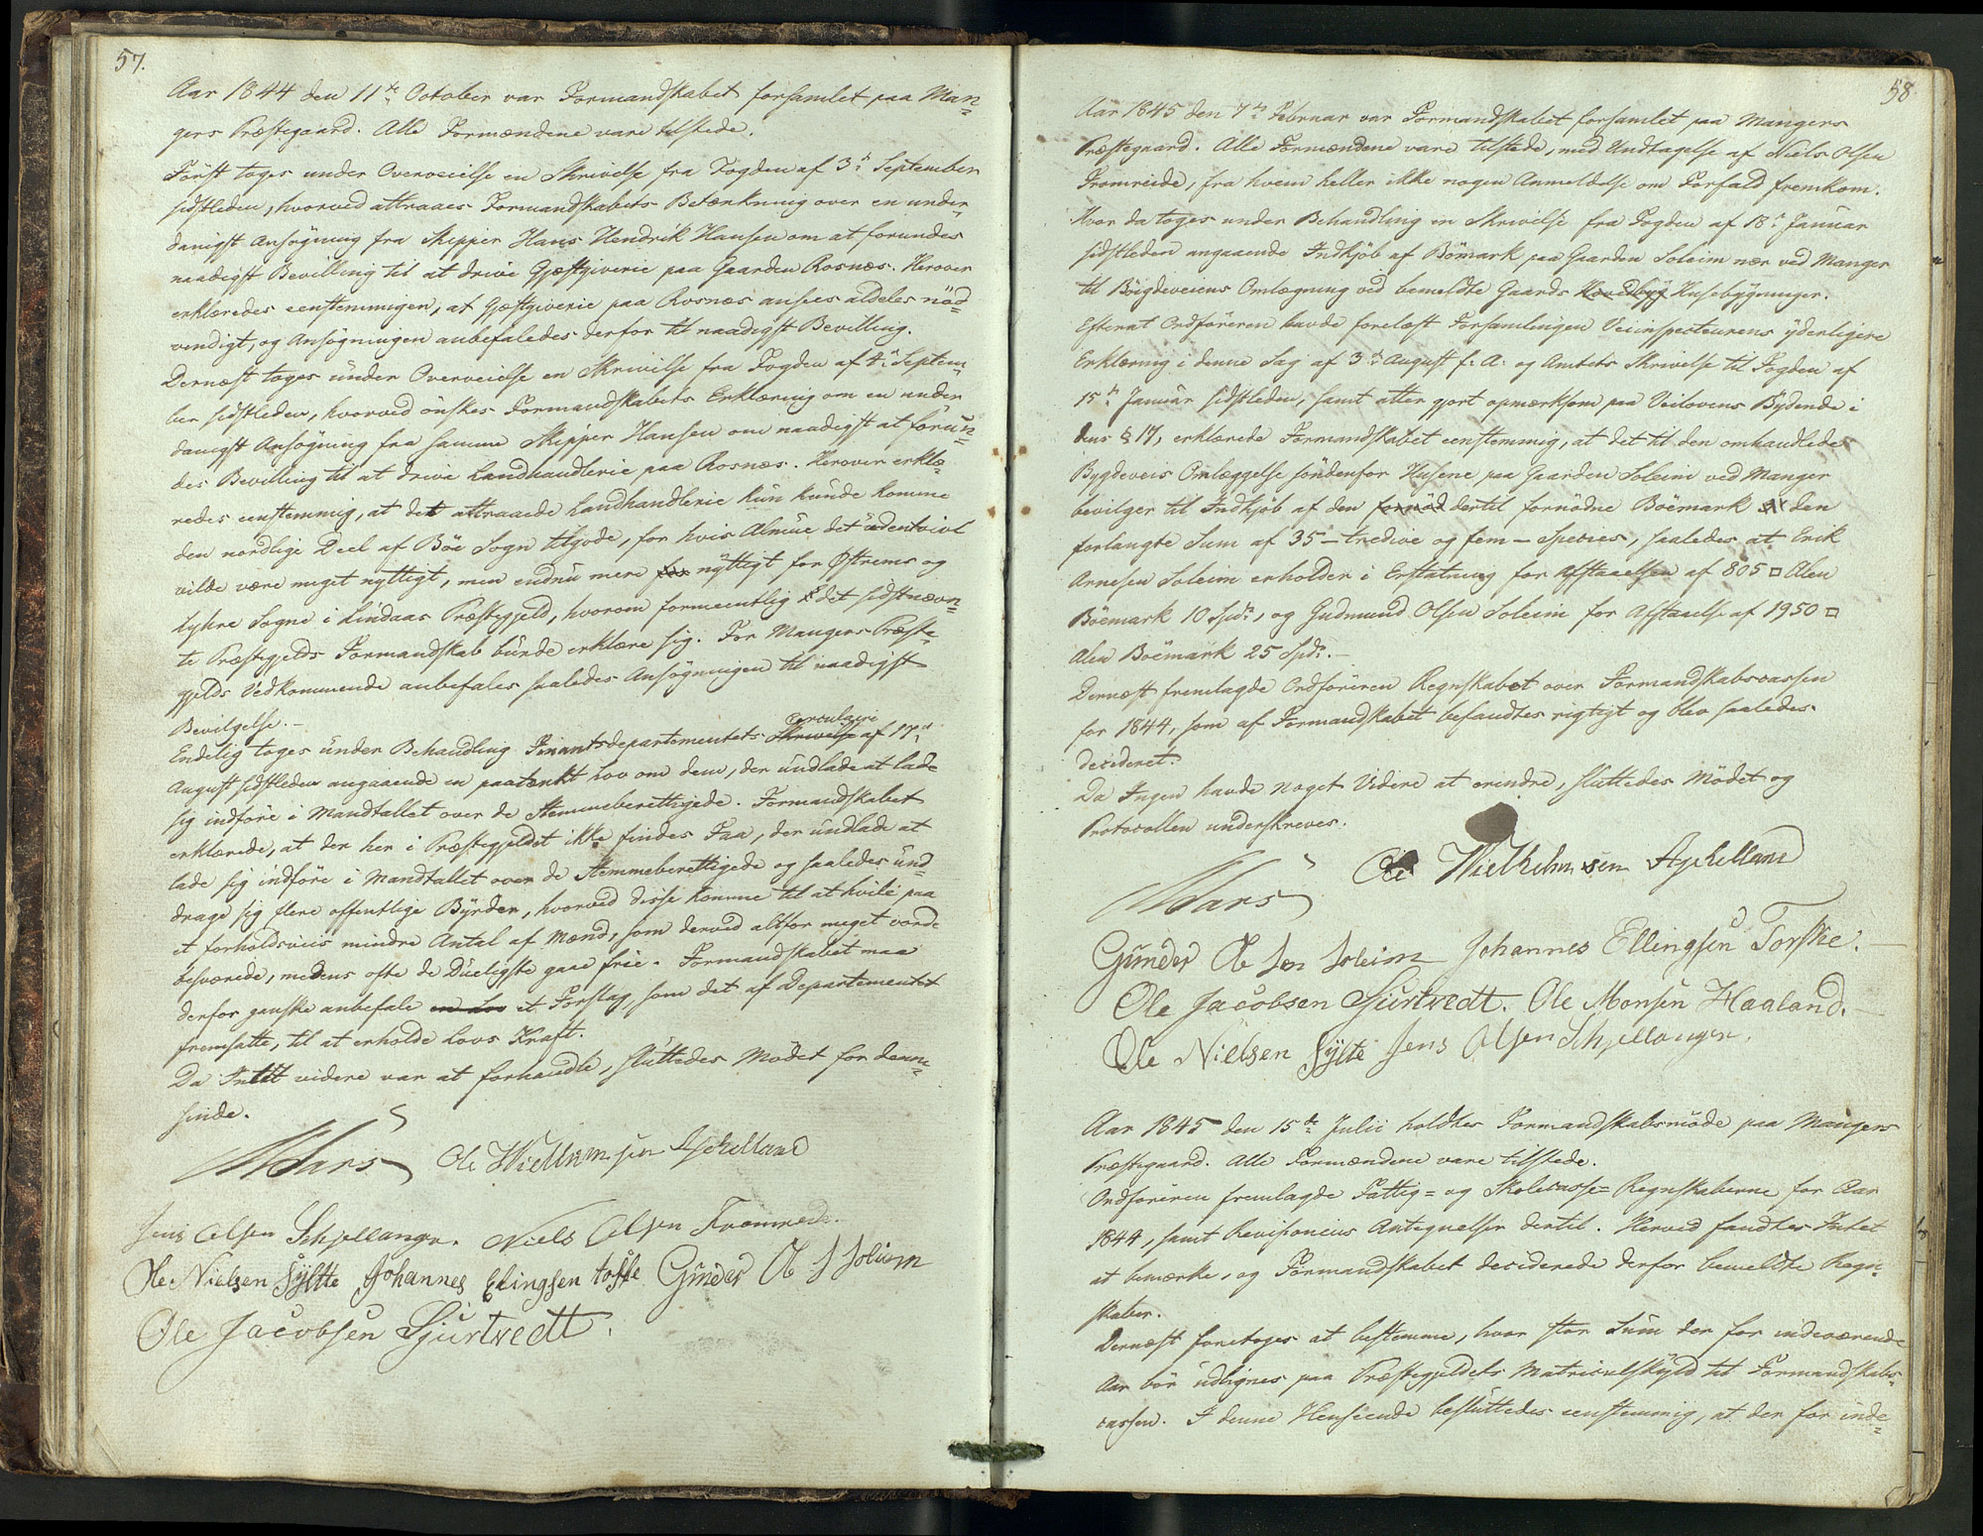 57.
Aar 1844 den 11te October var Formandskabet forsamlet paa Man=
gers Præstegaard. Alle Formændene vare tilstede.
Först toges under Overveielse en Skrivelse fra Fogden af 3die September
sidstleden, hvorved attraaes Formandskabets Betænkning over en under=
danigst Ansögning fra Skipper Hans Hendrik Hansen om at forundes
naadigst Bevilling til at drive Gjæstgiverie paa Gaarden Rosnæs. Herover
erklæredes eenstemmigen, at Gjæstgiverie paa Rosnæs ansees aldeles nöd=
vendigt, og Ansögningen anbefaledes derfor til naadigst Bevilling.
Dernæst toges under Overveielse en Skrivelse fra Fogden af 4de Septem=
ber sidstleden, hvorved önskes Formandskabets Erklæring om en under
danigst Ansögning fra samme Skipper Hansen om naadigst at forun=
des Bevilling til at drive Landhandlerie paa Rosnæs. Herover erklæ=
redes eenstemmig, at det attraaede Landhandlerie kun kunde komme
den nordlige Deel af Böe Sogn tilgode, for hvis Almue det udentvivl
vilde være meget nyttigt, men endnu mere for nyttigt for Østrems og
Lykre Sogne i Lindaas Præstegjeld, hvorom formeentlig det sidstnævn=
te Præstegjelds Formandskab burde erklære sig. For Mangers Præste=
gjelds Vedkommende anbefales saaledes Ansögningen til naadigst
Bevilgelse.—
Endelig toges under Behandling Finantsdepartementets Skrivelse Circulaire af 17de
August sidstleden angaaende en paatænkt Lov om dem, der undlade at lade
sig indföre i Mandtallet over de Stemmeberettigede. Formandskabet
erklærede, at der her i Præstegjeldet ikke findes Faa, der undlade at
lade sig indföre i Mandtallet over de Stemmeberettigede og saaledes und=
drage sig flere offentlige Byrder, hvorved disse komme til at hvile paa
et forholdsviis mindre Antal af Mænd, som derved altfor meget vorde
besværede, medens ofte de Dueligste gaae frie. Formandskabet maa
derfor ganske anbefale en Lov et Forslag, som det af Departementet
fremsatte, til at erholde Lovs Kraft.
Da Intet videre var at forhandle, sluttedes Mödet for denne=
sinde.
Ole Wielhelmsen Aschelland
Jens Olsen Schjellanger. Niels Olsen Fromreide.
Ole Nielsen Sylte Johannes Elingsen toske Gunder O S Soleim
Ole Jacobsen Sjurtvedt.
58
Aar 1845 den 7de Februar var Formandskabet forsamlet paa Mangers
Præstegaard. Alle Formændene vare tilstede, med Undtagelse af Niels Olsen
Fromreide, fra hvem heller ikke nogen Anmeldelse om Forfald fremkom.
Hvor da toges under Behandling en Skrivelse fra Fogden af 18de Januar
sidstleden angaaende Indkjöb af Bömark paa Gaarden Soleim nær ved Manger
til Böigdeveiens Omlægning ved bemeldte Gaards Husebygninger.
Efterat Ordföreren havde forelæst Forsamlingen Veiinspecteurens yderligere
Erklæring i denne Sag af 3die August f. A. og Amtets Skrivelse til Fogden af
15de Januar sidstleden, samt atter gjort opmærksom paa Veilovens Bydende i
dens § 17, erklærede Formandskabet eenstemmig, at det til den omhandlede
Bygdeveis Omlæggelse söndenfor Husene paa Gaarden Soleim ved Manger
bevilger til Indkjöb af den fornöd dertil fornödne Böemark den
forlangte Sum af 35 — tredive og fem — Species, saaledes at Erik
Arnesen Soleim erholder i Erstatning for Afstaaelsen af 805 □ Alen
Böemark 10 Spdr, og Gudmund Olsen Soleim for Afstaaelse af 1950 □
Alen Böemark 25 Spdr.—
Dernæst fremlagde Ordföreren Regnskabet over Formandskabscassen
for 1844, som af Formandskabet befandtes rigtigt og blev saaledes
decideret.
Da Ingen havde Noget Videre at erindre, sluttedes Mödet og
Protocollen underskreves.
Ole Wielhelmsen Aschelland
Gunder Ole Sen Soleim Johannes Ellingsen Torske.
Ole Jacobsen Sjurtvedt. Ole Monsen Haaland.
Ole Nielsen Sylte Jens Olsen Schjellanger.
Aar 1845 den 15de Julii holdtes Formandskabsmöde paa Mangers
Præstegaard. Alle Formændene vare tilstede.
Ordföreren fremlagde Fattig= og Skolecasse= Regnskaberne for Aar
1844, samt Revisionens Antegnelser dertil. Herved fandtes Intet
at bemærke, og Formandskabet deciderede derfor bemeldte Regn=
skaber.
Dernæst foretoges at bestemme, hvor stor Sum der for indeværende
Aar bör udlignes paa Præstegjeldets Matriculskyld til Formandskabs=
cassen. I denne Henseende besluttedes eenstemmig, at der for inde=